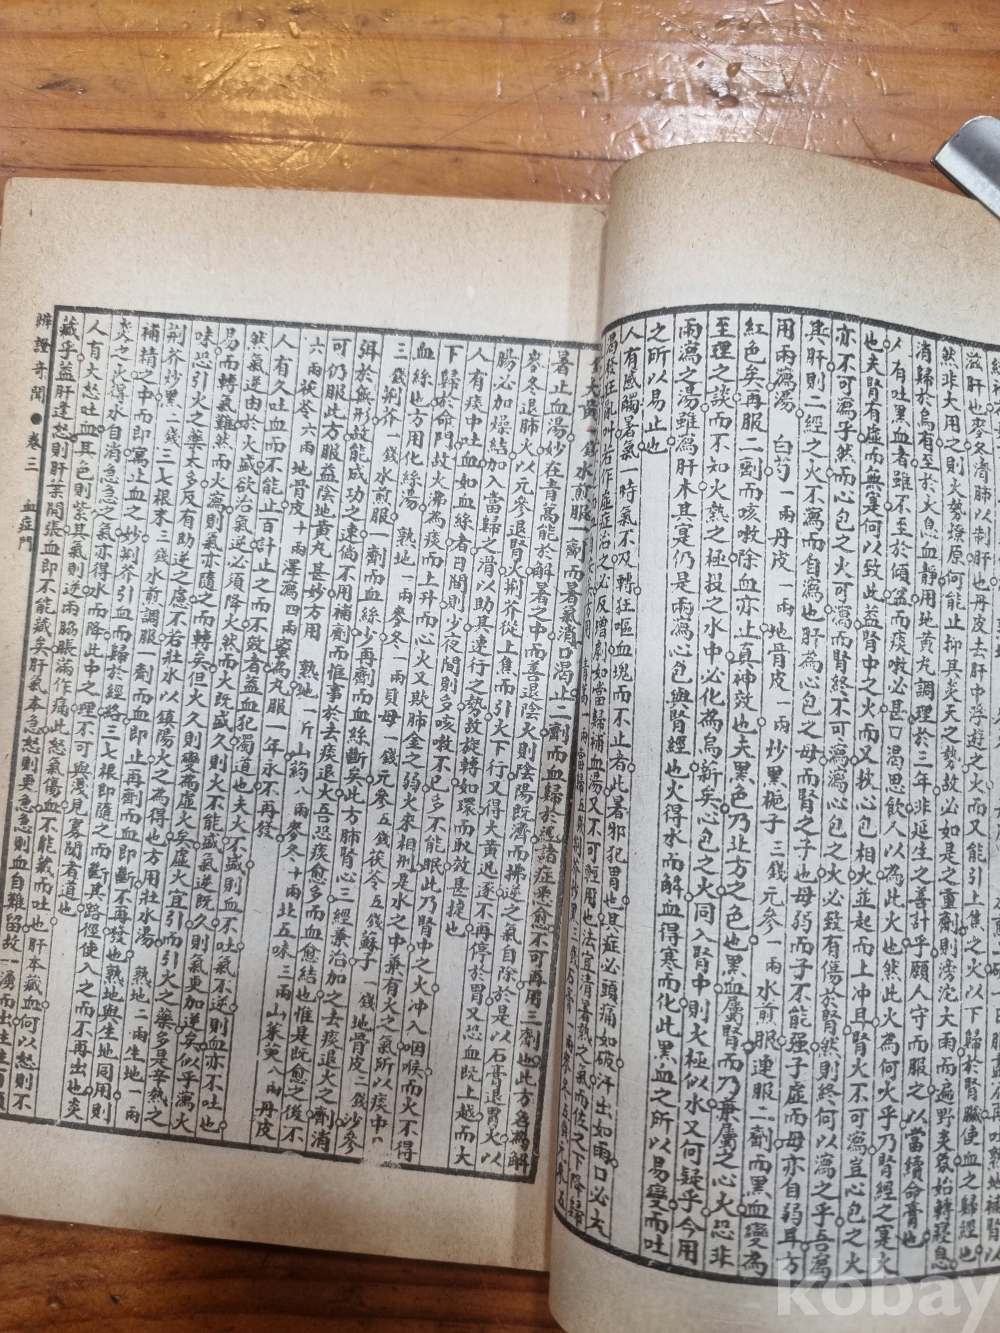 滋肝也麥冬濟肺以制肝也丹皮肝中浮遊之火而又能引上焦之火以下歸於腎臟使血之歸經也
然非大用之則火勢燎原何能止抑其炎天之勢故必如是之重劑則滂沱大雨而遍野炎氛始轉寢息
消歸於烏有至於火息血靜用地黃丸調理於三年非延生之善計乎願人守而服之以當續命膏也
人有吐黑血者雖不至於傾盆而痰嗽必甚口渴思飲人以為此火也然此火為何火乎乃腎經之實火
也夫腎有虛而無實何以致此益腎中之火而又挾心包相火並起而上冲且腎火不可瀉豈心包之火
亦不可瀉乎然而心包之火可瀉而腎終不可瀉瀉心包之火必致有傷於腎然則終何以瀉之乎吾瀉
其肝則二經之火不瀉而自瀉也肝為心包之母而腎之子也母弱而子不能強子虛而母亦自弱耳方
用兩瀉湯 白芍一兩丹皮一兩地骨皮一兩炒黑梔子三錢元參一兩水煎服連服二劑而黑血變為
紅色矣再服二劑而咳嗽除血亦止真神效也夫黑色乃北方之色也黑血屬腎而乃兼屬之心火恐非
至理之談而不知火熱之極投之水中必化為烏新矣心包之火同入腎中則火極似水又何疑乎今用
兩瀉之湯雖瀉肝木其實仍是兩瀉心包與腎經也火得水而解血得寒而化此黑血之所以易變而吐
之所以易止也
人有感觸暑氣一時氣不及轉狂嘔血塊而不止者此暑邪犯胃也其症必頭痛如破汗出如雨口必大
渴發狂亂叫若作虛症治之必反增劇如當歸補血湯又不可輕用也法宜清暑熱之氣而佐之下降歸
大黃一錢水煎服一劑而暑氣消口渴止二劑而血歸於經諸症悉愈不可再用三劑也此方名為解
暑止血湯妙在青蒿能於解暑之中而善退陰火則陰陽既濟而拂逆之氣自除於是以石膏退胃火以
麥冬退肺火以元參退腎火荊芥從上焦而引火下行又得大黃迅逐不再停於胃又恐血既上越而大
腸必加燥結加入當歸之滑以助其速行之勢故旋轉如環而取效甚捷也
人有痰中吐血如血絲者日間則少夜間則多咳嗽不已多不能眠此乃腎中之火冲入咽喉而火不得
下歸於命門故火沸為痰而上升而心火又欺肺金之弱火來相刑是水之中兼有火之氣所以痰中
血絲也方用化絲湯 熟地一兩麥冬一兩貝母一錢元參五錢茯苓五錢蘇子一錢地骨皮三錢沙參
三錢荊芥一錢水煎服一劑而血絲少再劑而血絲斷矣此方肺腎心三經兼治加之去痰退火之劑消
弭於無形故能成功之速倘不用補劑而惟事於去痰退火吾恐痰愈多而血愈結也惟是既愈之後不
可仍服此方服益陰地黃丸甚妙方用 熟地一斤山藥八兩麥冬十兩北五味三兩山萸八兩丹皮
六兩茯苓六兩地骨皮十兩澤瀉四兩蜜為丸服一年永不再發
人有久吐血而不能止百計止之而不效者蓋血犯濁道也夫火不盛則血不吐氣不逆則血亦不吐也
然氣逆由於火盛欲治氣逆必須降火然而火既盛久則火不能盛氣逆既久則氣更加逆矣似乎瀉火
易而轉氣難然而火瀉則氣亦隨之而轉矣但火久則變為虛火矣虛火宜引而引火之藥多是辛熱之
味恐引火之藥太多反有助逆之慮不若壯水以鎮陽火之為得也方用壯水湯 熟地二兩生地一兩
荊芥炒黑一錢三七根末三錢水煎調服一劑而血即止再劑而血即斷不再發也熟地與生地同用則
補精之中而即寓止血之妙荊芥引血而歸於經絡三七根即隨之而斷其路徑使入之而不再出也炎
炎之火得水自消急急之氣亦得水而降此中之理不可與淺見寡聞者道也
人有大怒吐血其色則紫其氣則逆兩脇脹滿作痛此怒氣傷血不能藏而吐也肝本藏血何以怒則不
藏乎蓋肝逢怒則肝葉開張血即不能藏矣肝氣本急怒則更急急則血自難留故一湧而出
辨證奇聞 ● 卷三 血症門
kobay